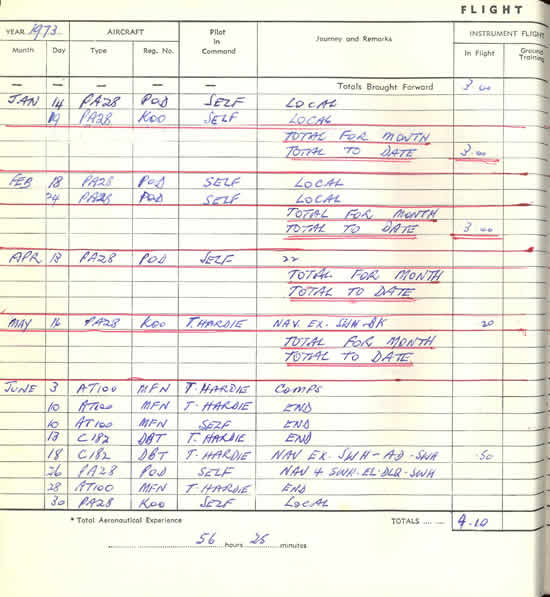 FLIGHT
YEAR 1973 AIRCRAFT Pilot in Command Journey and Remarks INSTRUMENT FLIGHT
Month Day Type Reg. No. In Flight Ground Training
— — — — — Totals Brought Forward 3.00
JAN 14 PA28 POD SELF LOCAL
19 PA28 KOO SELF LOCAL
TOTAL FOR MONTH
TOTAL TO DATE 3.00
FEB 18 PA28 POD SELF LOCAL
24 PA28 POD SELF LOCAL
TOTAL FOR MONTH
TOTAL TO DATE 3.00
APR 13 PA28 POD SELF 22
TOTAL FOR MONTH
TOTAL TO DATE
MAY 16 PA28 KOO T. HARDIE NAV EX. SWH-BK 20
TOTAL FOR MONTH
TOTAL TO DATE
JUNE 3 AT100 MFN T. HARDIE COMPS
10 AT100 MFN T. HARDIE END
10 AT100 MFN SELF END
13 C182 DBT T. HARDIE END
18 C182 DBT T. HARDIE NAV EX. SWH-AD-SWH .50
26 PA28 POD SELF NAV 4 SWH.EL.DLQ.SWH
28 AT100 MFN T. HARDIE END
30 PA28 KOO SELF LOCAL
* Total Aeronautical Experience TOTALS ...... 4.10
56 hours 25 minutes